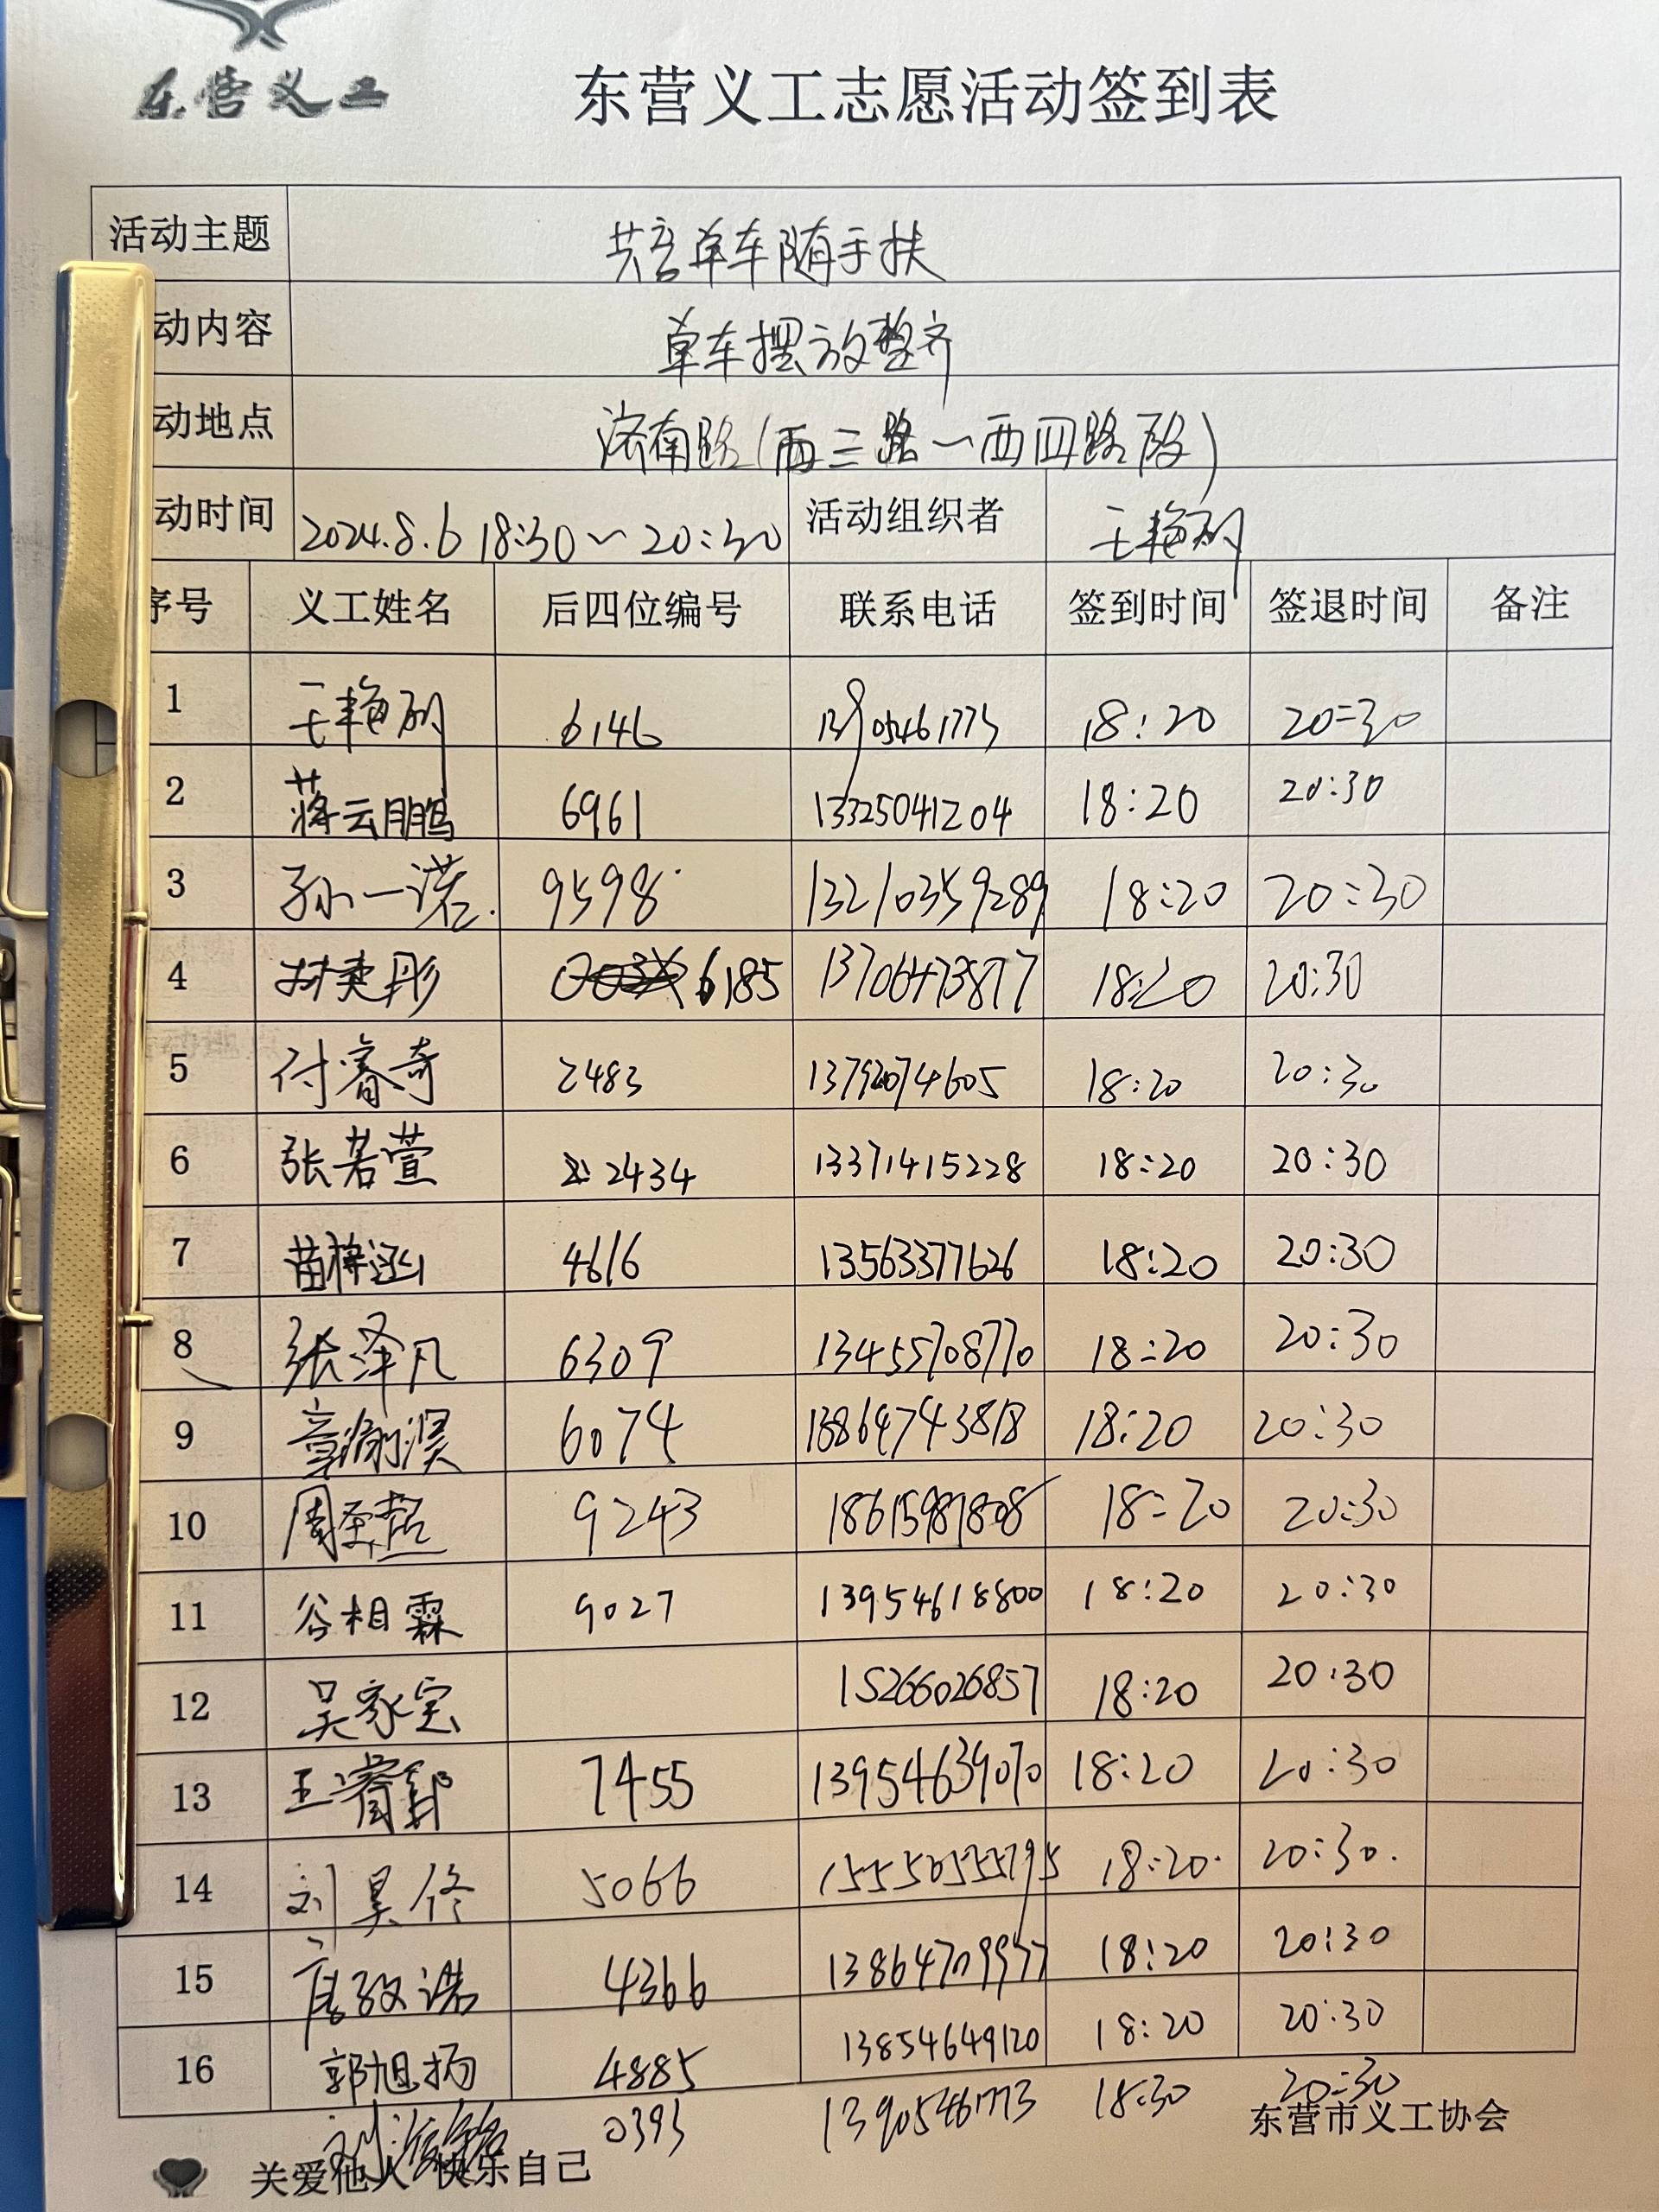 东营义工
东营义工志愿活动签到表
活动主题 共享单车随手扶
动内容 单车摆放整齐
动地点 济南路(西三路一西四路段)
动时间 2024.8.6 18:30~20:30 活动组织者 王艳丽
序号 义工姓名 后四位编号 联系电话 签到时间 签退时间 备注
1 王艳丽 6146 13905461773 18:20 20=30
2 蒋云鹏 6961 13325041204 18:20 20:30
3 孙一诺. 9598 13210359289 18:20 20:30
4 林奕彤 6185 13706473877 18:20 20:30
5 付睿奇 2483 13792074605 18:20 20:30
6 张若萱 2434 13371415228 18:20 20:30
7 苗梓涵 4616 13563377626 18:20 20:30
8 张泽凡 6309 13455708770 18:20 20:30
9 6074 13864743818 18:20 20:30
10 9243 18615981808 18:20 20:30
11 谷相霖 9027 13954618800 18:20 20:30
12 吴家宝 15266026857 18:20 20:30
13 7455 13954639070 18:20 20:30
14 刘昊佟 5066 18:20. 20:30.
15 4366 18:20 20:30
16 郭旭扬 4885 13854649120 18:20 20:30
0393 13905461773 18:30 20:30
东营市义工协会
关爱他人 快乐自己